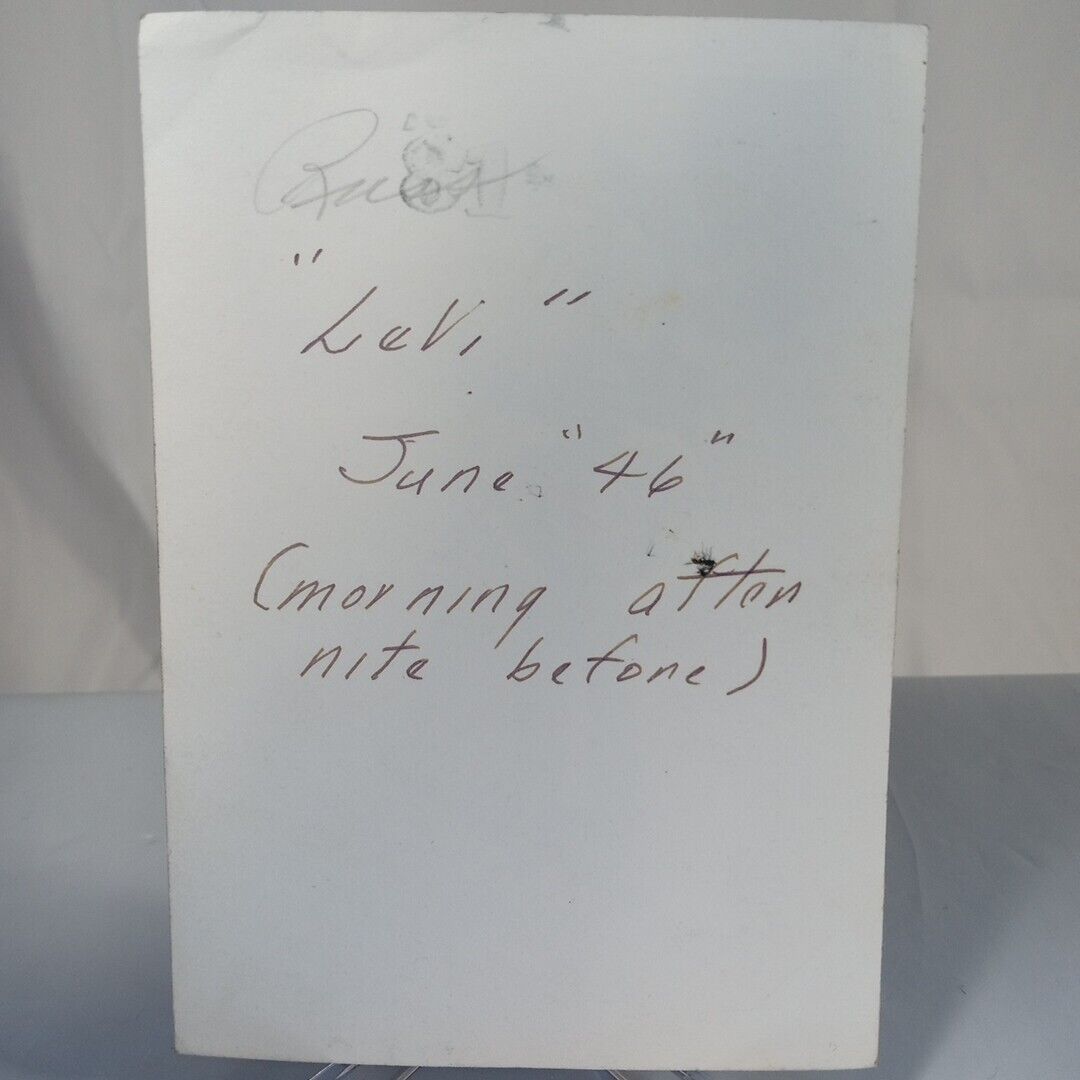 "LeVi"
June "46"
(morning after
nite before)